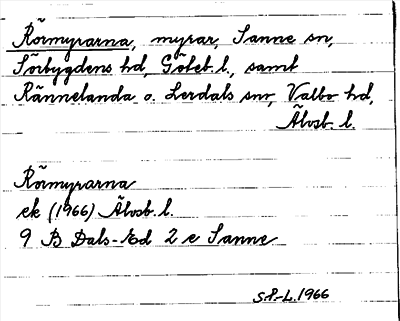 Rörmyrarna, myrar, Sanne sn,
Sörbygdens hd, Göteb. l., samt
Rännelanda o. Lerdals snr, Valbo hd,
Älvsb. l.
Rörmyrarna
ek (1966) Älvsb. l.
9 B Dals-Ed 2 e Sanne
S.P.-L. 1966